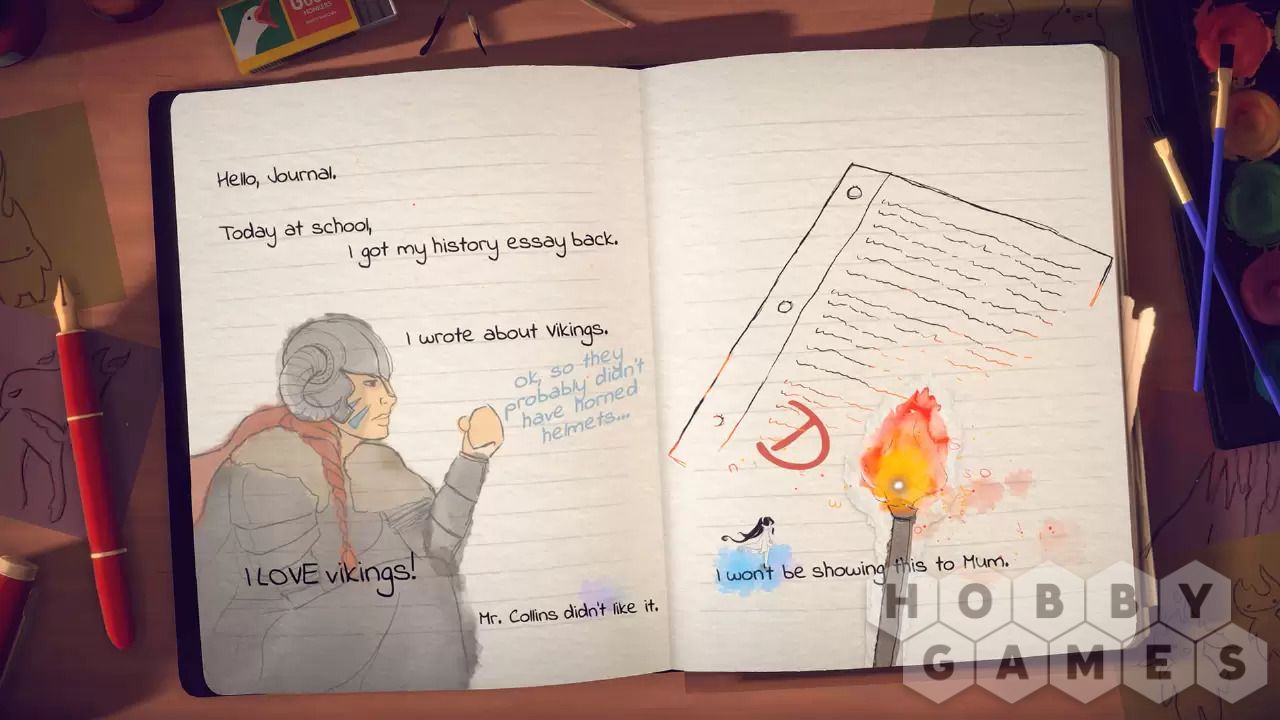 Hello, Journal.
Today at school,
I got my history essay back.
I wrote about vikings.
ok, so they
probably didn't
have horned
helmets...
I LOVE vikings!
Mr. Collins didn't like it.
D
I won't be showing this to Mum.
HOBBY
GAMES